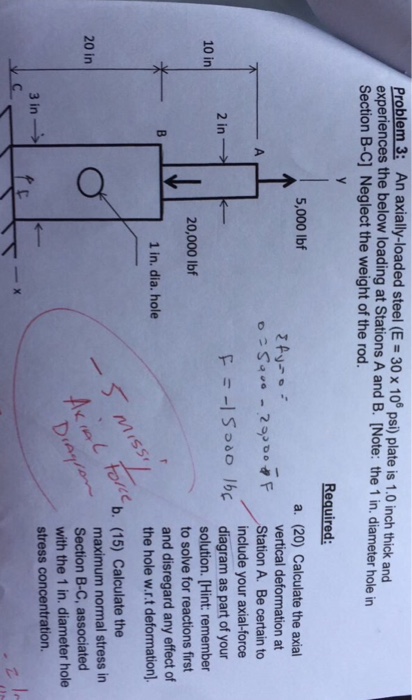 Problem 3: An axially-loaded steel (E = 30 x 10⁶ psi) plate is 1.0 inch thick and
experiences the below loading at Stations A and B. [Note: the 1 in. diameter hole in
Section B-C] Neglect the weight of the rod.
y
5,000 lbf
A
2 in
10 in
20,000 lbf
B
1 in. dia. hole
20 in
3 in
C
F
x
ΣFy=0:
0=5000-20,000+F
F = -15000 lbf
-5 missi
Axial Force
Diagram
Required:
a. (20) Calculate the axial
vertical deformation at
Station A. Be certain to
include your axial-force
diagram as part of your
solution. [Hint: remember
to solve for reactions first
and disregard any effect of
the hole w.r.t deformation].
b. (15) Calculate the
maximum normal stress in
Section B-C, associated
with the 1 in. diameter hole
stress concentration.